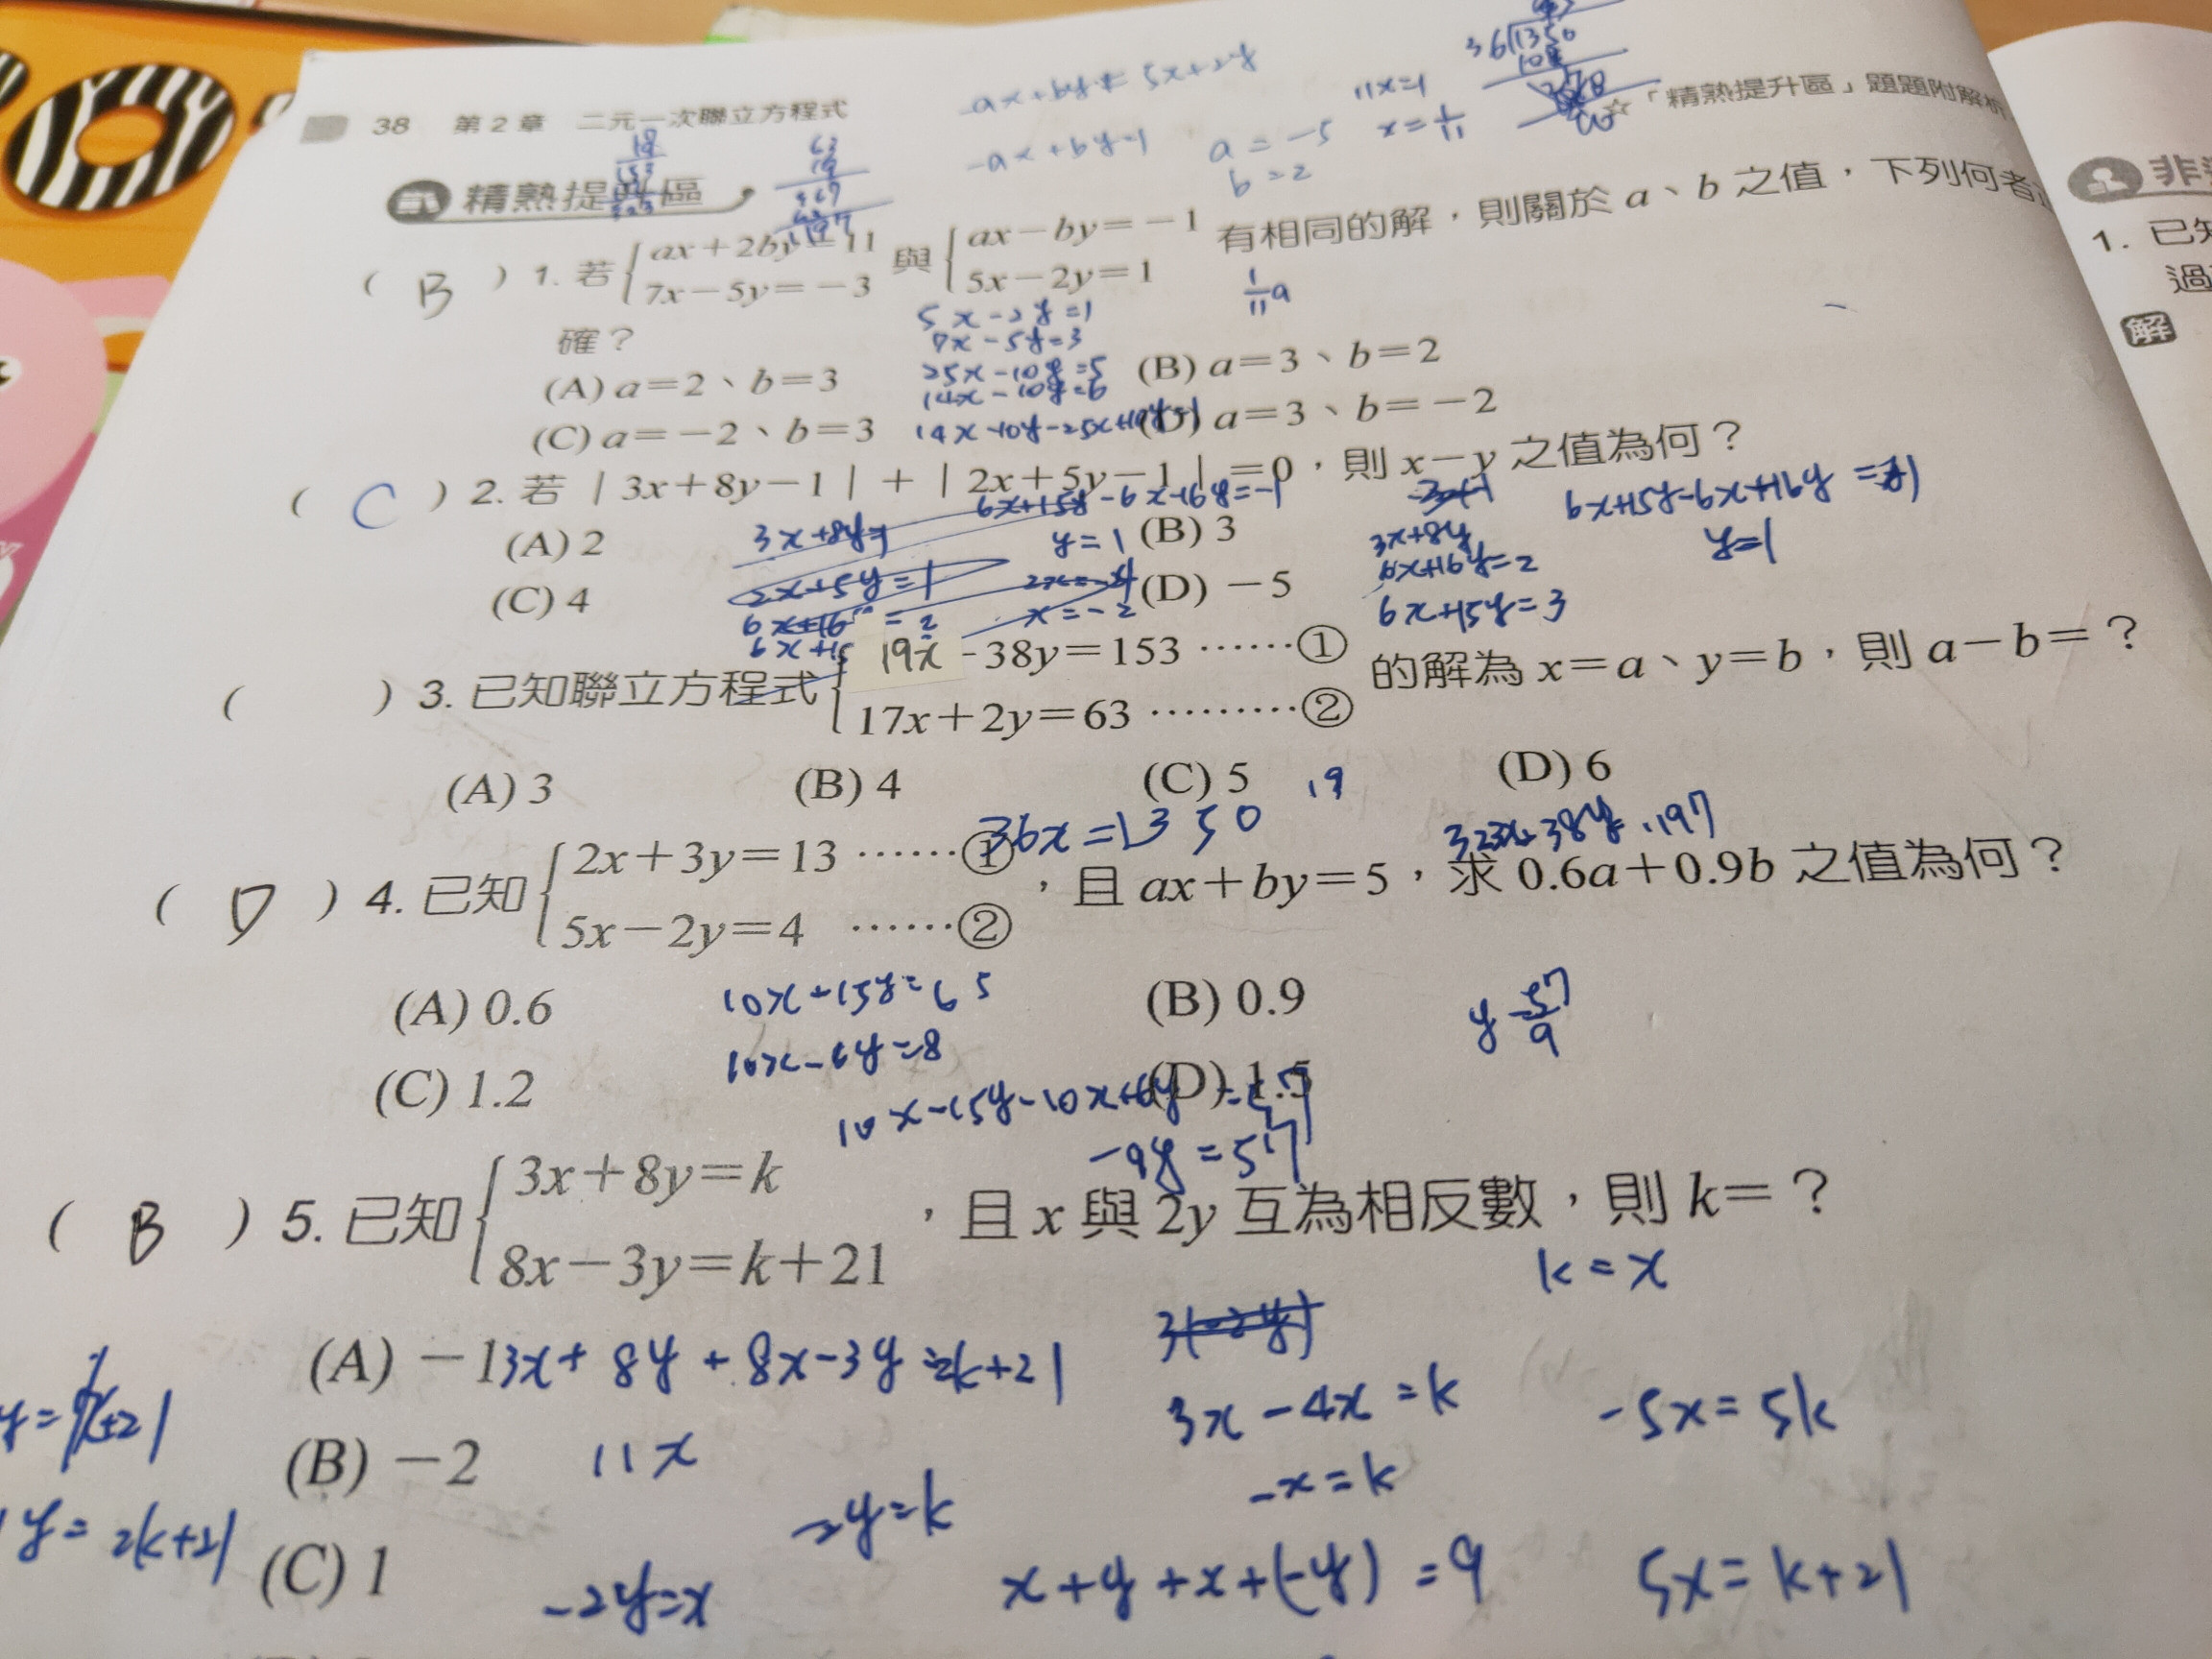 38 第2章 二元一次聯立方程式
☆「精熟提升區」題題附解析
-ax+by≠5x+2y
-ax+by=1
a=-5
b=2
11x=1
x=1/11
36 1350
貳 精熟提 區
(B) 1. 若 ax+2by=11 與 ax-by=-1 有相同的解,則關於a、b之值,下列何者
7x-5y=-3 5x-2y=1
確?
1/11 a
5x-2y=1
7x-5y=3
25x-10y=5
14x-10y=6
(A) a=2、b=3 (B) a=3、b=2
(C) a=-2、b=3 (D) a=3、b=-2
(C) 2. 若|3x+8y-1|+|2x+5y-1|=0,則x-y之值為何?
6x+15y-6x-16y=-1
(A) 2 (B) 3
(C) 4 (D) -5
3x+8y=1
2x+5y=1
y=1
x=-2
3x+8y
6x+16y=2
6x+15y=3
y=1
( ) 3. 已知聯立方程式 19x-38y=153 ……① 的解為x=a、y=b,則a-b=?
17x+2y=63 ………②
(A) 3 (B) 4 (C) 5 (D) 6
19
36x=1350
(D) 4. 已知 2x+3y=13 ……① ,且ax+by=5,求0.6a+0.9b之值為何?
5x-2y=4 ……②
(A) 0.6 (B) 0.9
(C) 1.2 (D) 1.5
10x+15y=65
10x-6y=8
-9y=57
(B) 5. 已知 3x+8y=k ,且x與2y互為相反數,則k=?
8x-3y=k+21
k=x
(A) -1
3x+8y+8x-3y=2k+21
(B) -2
11x
(C) 1
3x-4x=k
-x=k
-5x=5k
-2y=k
-2y=x
x+y+x+(-y)=9
5x=k+21
y=2k+21
非
1. 已知
過
解